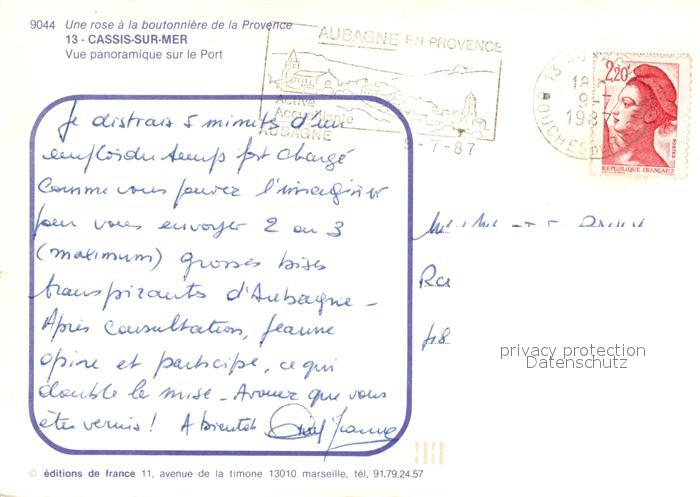 9044 Une rose à la boutonnière de la Provence
13 - CASSIS-SUR-MER
Vue panoramique sur le Port
AUBAGNE EN PROVENCE
Active
Accueillante
AUBAGNE
9-7-87
13 AUBAGNE
18
9-7
1987
BOUCHES DU RHONE
2,20
POSTES
REPUBLIQUE FRANÇAISE
Je distrais 5 minutes d'un
emploi du temps fort chargé
comme vous pouvez l'imaginer
pour vous envoyer 2 ou 3
(maximum) grosses bises
transpirantes d'Aubagne -
Après consultation, Jeanne
opine et participe, ce qui
double la mise - Avouez que vous
êtes vernis ! A bientôt Jeanne
privacy protection
Datenschutz
© éditions de france 11, avenue de la timone 13010 marseille, tél, 91.79.24.57